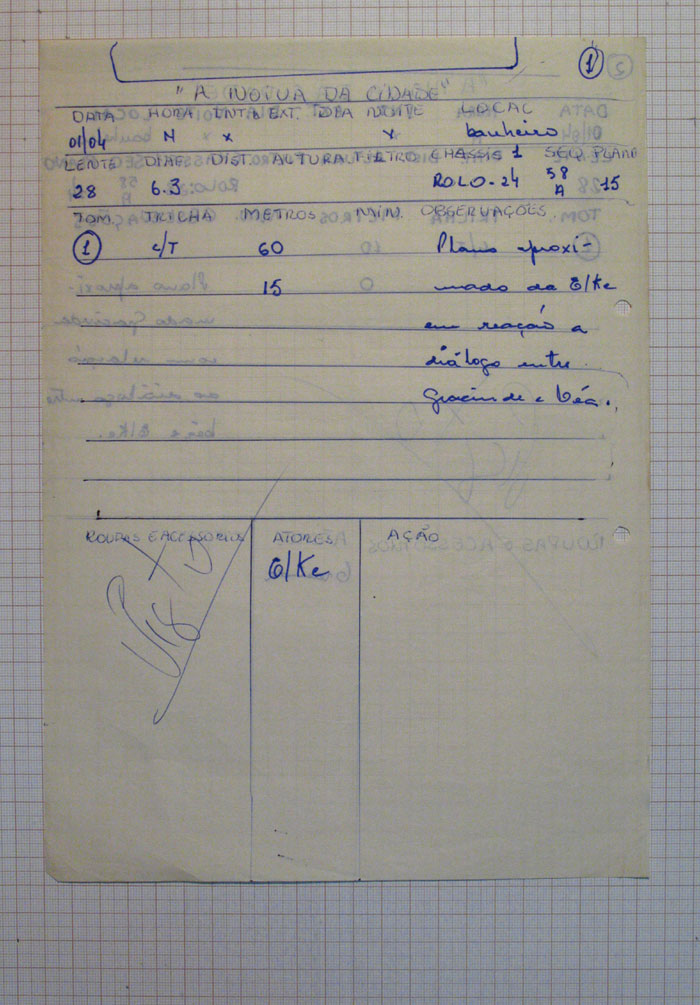 1
"A NOIVA DA CIDADE"
DATA HORA INT. EXT. DIA NOITE LOCAL
01/04 N x x banheiro
LENTE DIAF. DIST. ALTURA FILTRO CHASSIS 1 SEQ. PLANO
28 6.3 ROLO-24 58 A 15
TOM. TRILHA METROS MIN. OBSERVAÇÕES
1 c/T 60 Plano aproxi-
15 mado da E/Ke
em reação a
diálogo entre
e Béa.
ROUPAS E ACESSORIOS ATORES AÇÃO
E/Ke